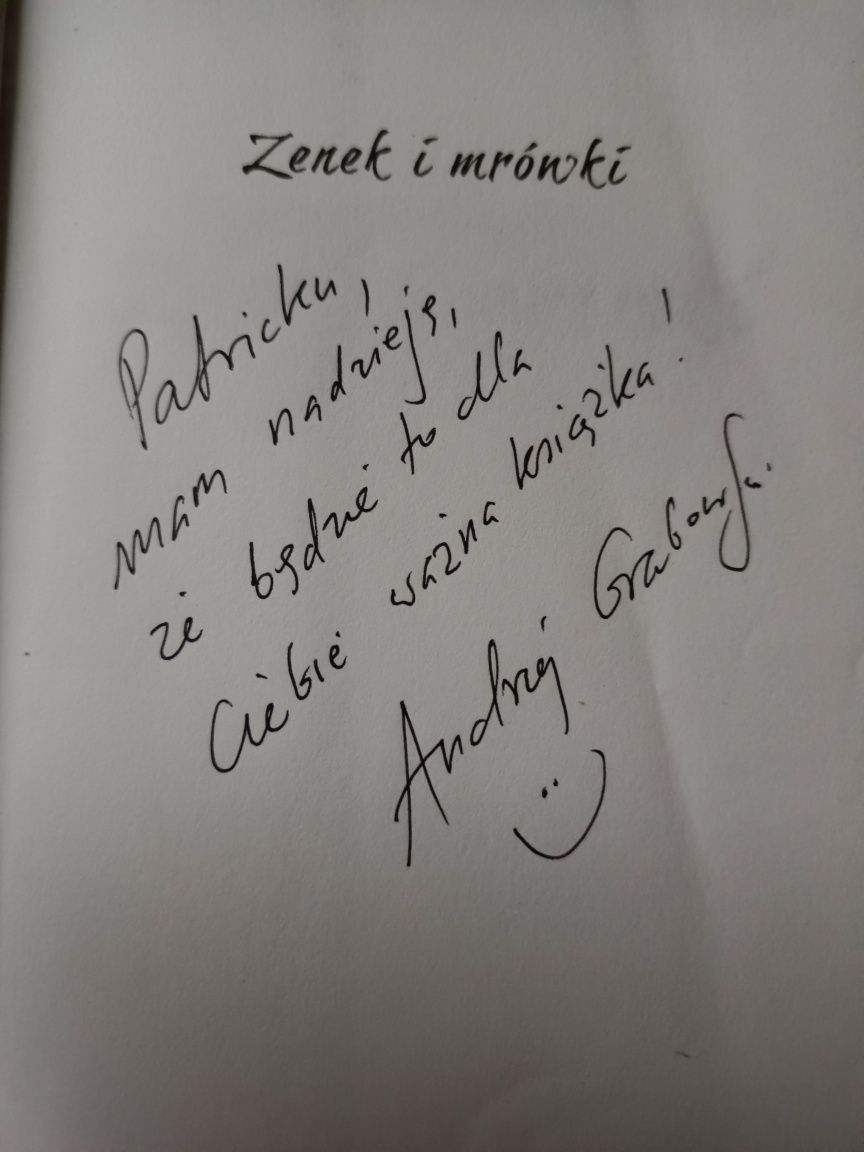 Zenek i mrówki
Patricku,
mam nadzieję,
że będzie to dla
Ciebie ważna książka!
Andrzej Grabowski